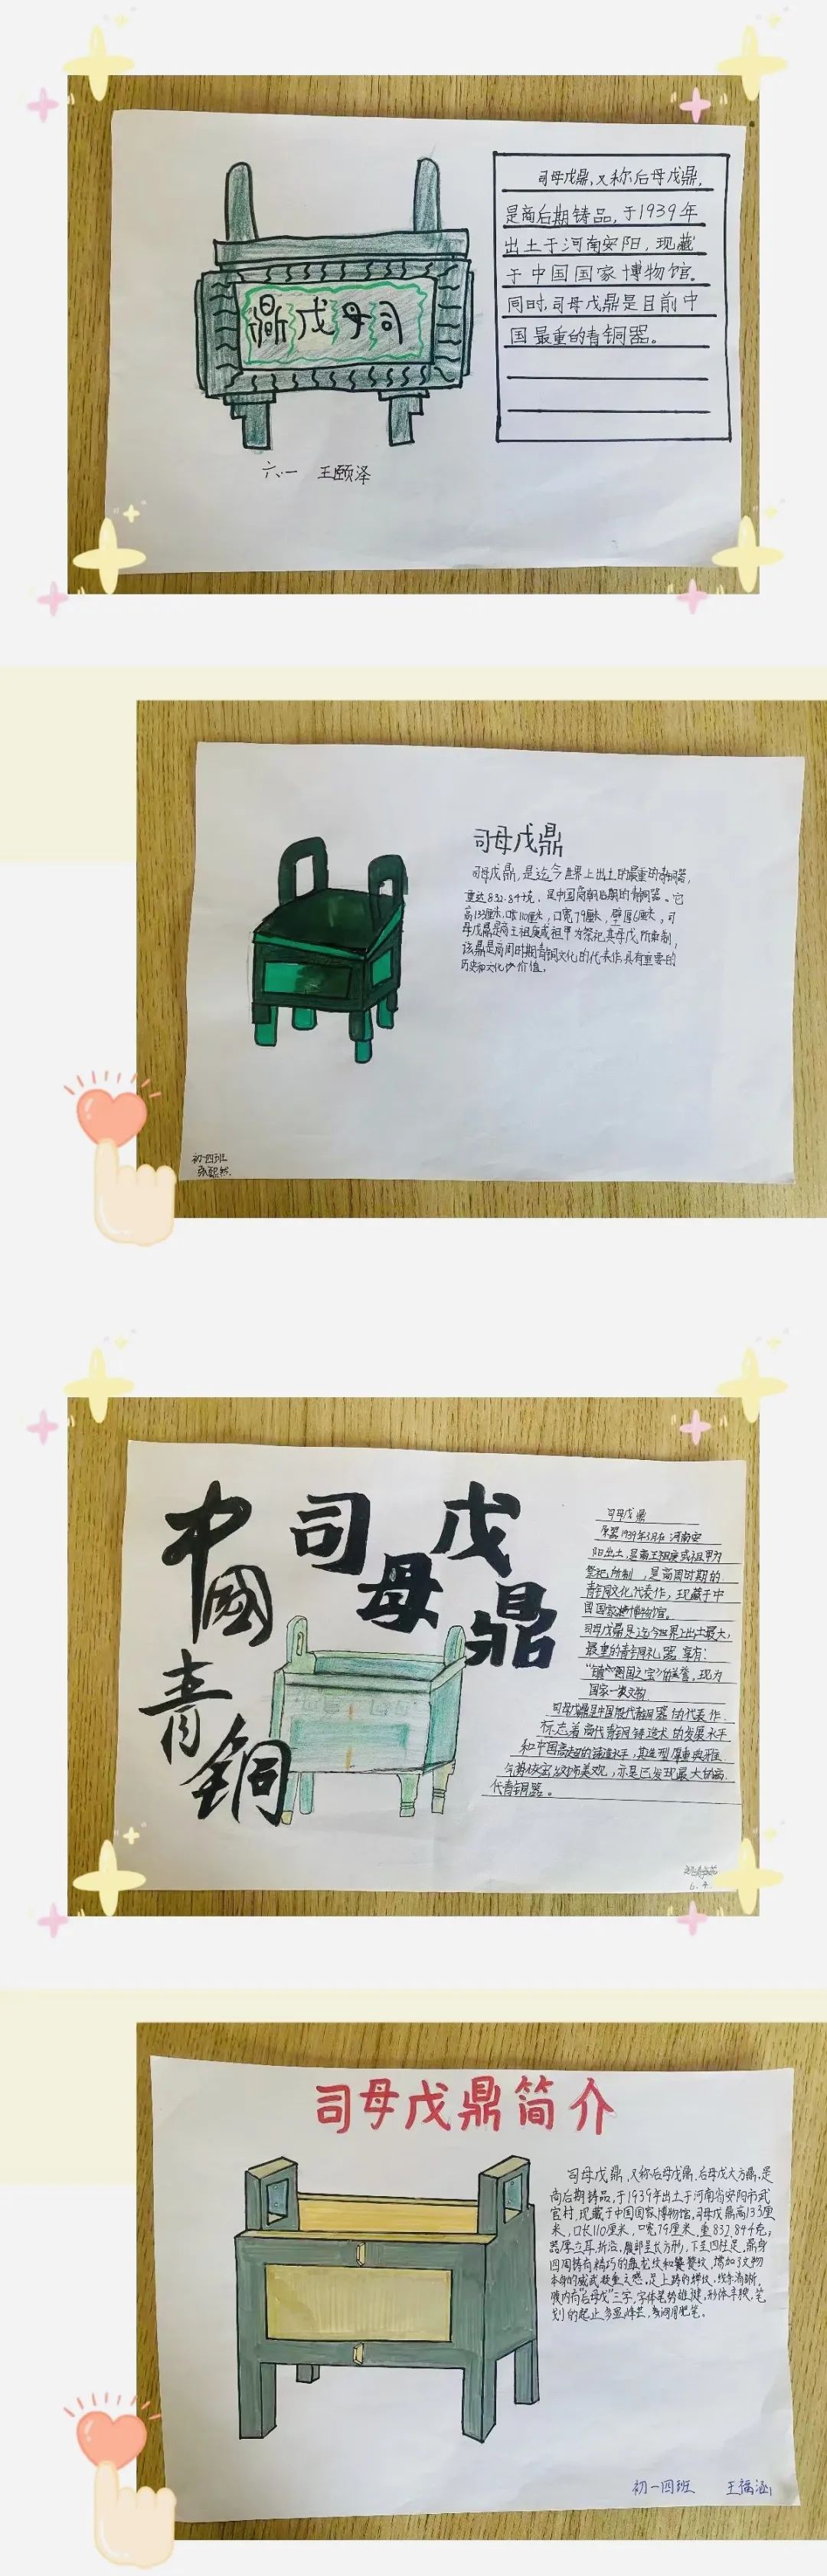 司母戊鼎,又称后母戊鼎,
是商后期铸品,于1939年
出土于河南安阳,现藏
于中国国家博物馆.
同时,司母戊鼎是目前中
国最重的青铜器。
鼎戊母司
六、一 王颐泽
司母戊鼎
司母戊鼎,是迄今世界上出土的最重的青铜器,
重达832.84千克,是中国商朝后期的青铜器。它
高133厘米,口长110厘米,口宽79厘米,壁厚6厘米,司
母戊鼎是商王祖庚或祖甲为祭祀其母戊所制,
该鼎是商周时期青铜文化的代表作,具有重要的
历史和文化价值.
初一四班
中國青铜
司母戊鼎
司母戊鼎
原器1939年3月在河南安
阳出土,是商王祖庚或祖甲为
祭祀 所制,是商周时期的
青铜文化代表作,现藏于中
国国家博物馆。
司母戊鼎是迄今世界上出土最大,
最重的青铜礼器,享有:
国之宝"的美誉.现为
国家一级文物
司母戊鼎是中国 代青铜器的代表作.
标志着商代青铜铸造术的发展水平
和中国高超的铸造水平,其造型厚重典雅
气势恢宏,纹饰美观,亦是已发现最大的商
代青铜器。
6.4.
司母戊鼎简介
司母戊鼎,又称后母戊鼎、后母戊大方鼎,是
商后期铸品,于1939年出土于河南省安阳市武
官村,现藏于中国国家博物馆.司母戊鼎高133厘
米,口长110厘米,口宽79厘米,重832.84千克;
器厚立耳,折沿,腹部呈长方形,下呈四柱足,鼎身
四周铸有精巧的盘龙纹和饕餮纹,增加了文物
本身的威武凝重之感.足上铸的蝉纹,线条清晰.
腹内有"后母戊"三字,字体笔势雄健,形体丰腴,笔
划的起止多显峰芒,多用肥笔。
初一四班 王福涵